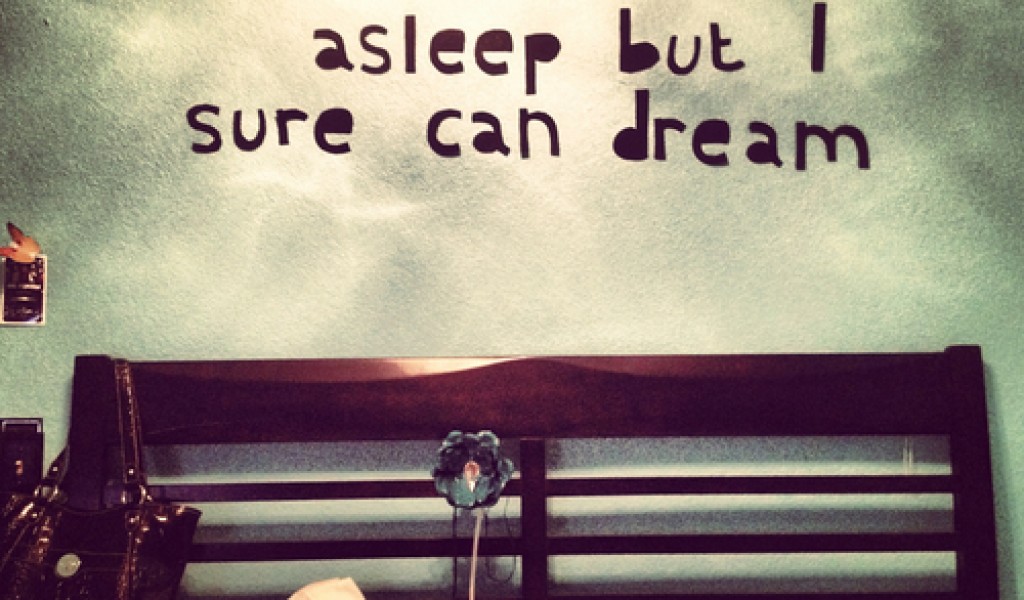 asleep but I
sure can dream